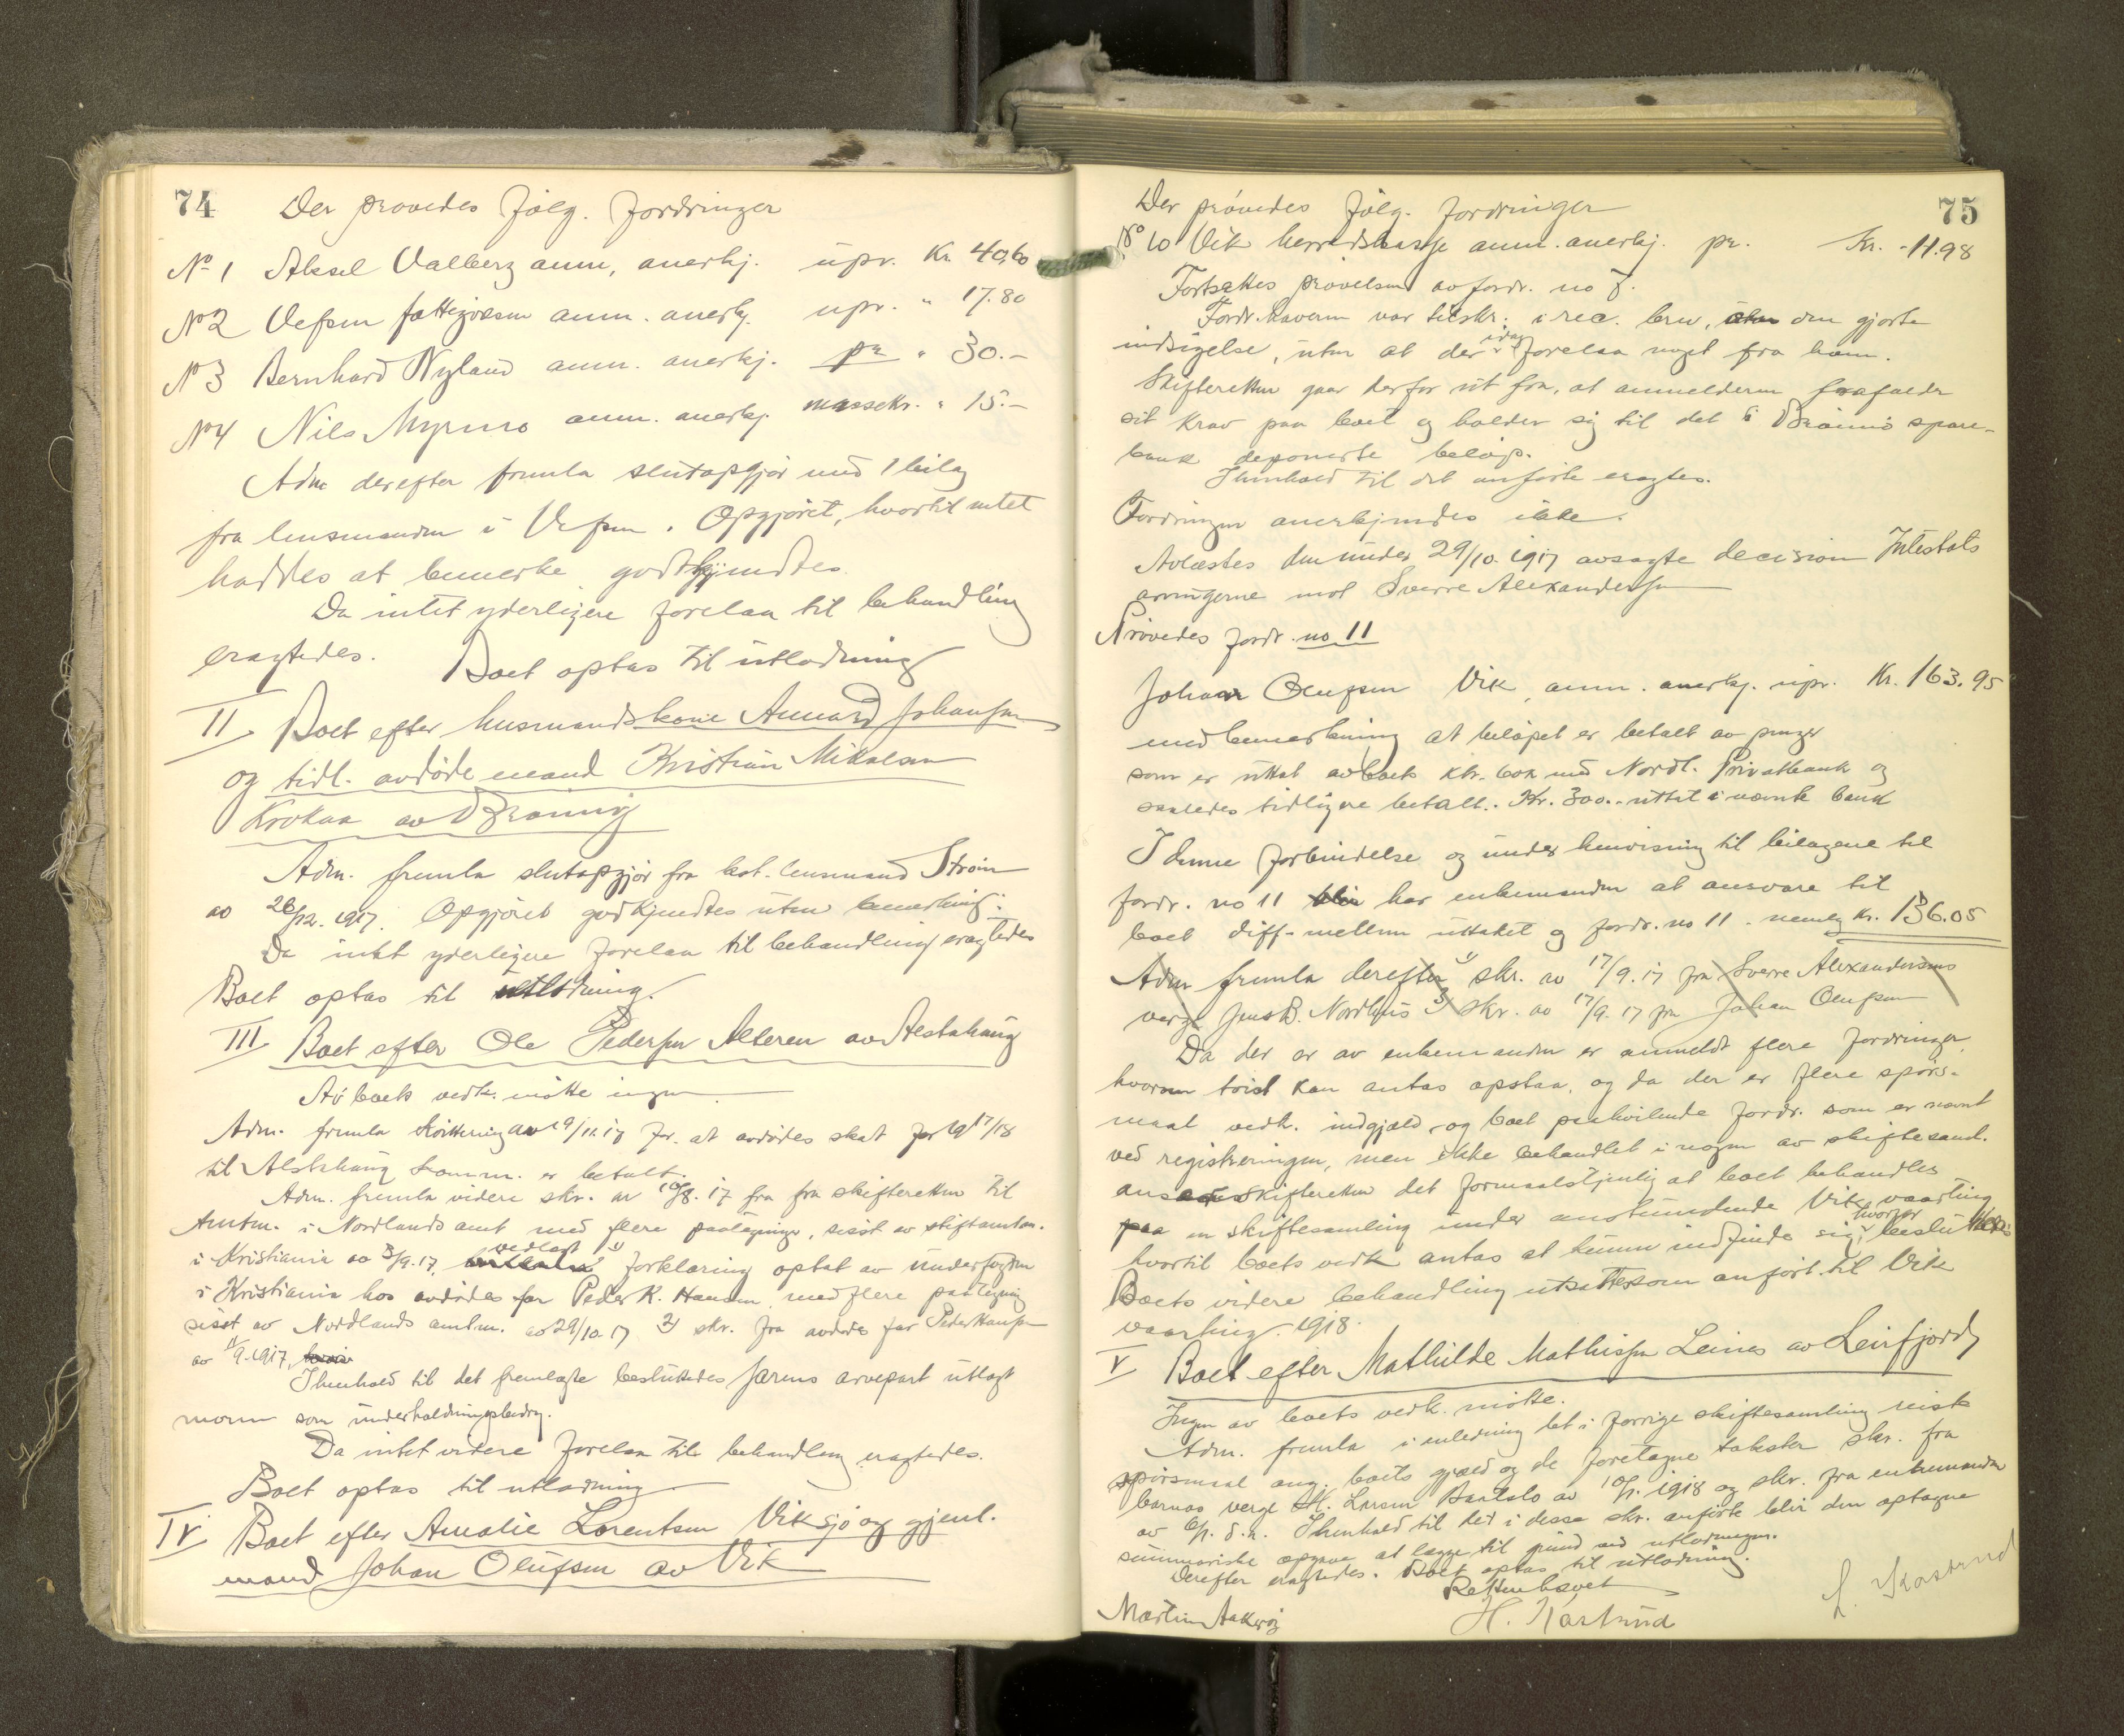 74
Der prøvedes følg. fordringer
No 1 Aksel Valberg anm, anerkj. upr. Kr. 40,60
No 2 Vefsen fattigvæsen anm. anerkj. upr. " 17.80
No 3 Bernhard Nyland anm. anerkj. pr " 30.-
No 4 Nils Myrmo anm. anerkj. massekr. " 15.-
Adm derefter fremla slutopgjør med 1 bilag
fra lensmanden i Vefsen. Opgjøret, hvortil intet
haddes at bemerke godtkjendtes.
Da intet yderligere forelaa til behandling
eragtedes. Boet optas til utlodning
II Boet efter husmandskone Johansen
og tidl. avdøde mand Kristian Mikalsen
Krokaa av Drevja
Adm. fremla slutopgjør fra kst. lensmand Strøm
av 28/12. 1917. Opgjøret godkjendtes uten bemerkning.
Da intet yderligere forelaa til behandling eragtedes
Boet optas til utlodning.
III Boet efter Ole Pedersen Alteren av Alstahaug
Av boets vedk. møtte ingen
Adm. fremla kvittering av 29/11.17 for at avdødes skat for 1917/18
til Alstahaug komm. er betalt.
Adm. fremla videre skr. av 10/8. 17 fra fra skifteretten til
Amtm. i Nordlands amt med flere paategninger, sisst av stiftamtm.
i Kristiania av 3/9.17, vedlagt 1) forklaring optat av underfogden
i Kristiania hos avdødes far Peder K. Hansen med flere paategning
sisst av Nordlands amtm. av 29/10. 17 2) skr. fra avdødes far Peder Hansen
av 11/9. 1917,
I henhold til det fremlagte besluttedes farens arvepart utlagt
moren som underholdningsbidrag.
Da intet videre forelaa til behandling eragtedes.
Boet optas til utlodning
IV Boet efter Amalie Lorentsen Viksjø og gjenl.
mand Johan Olufsen av Vik
75
Der prøvedes følg. fordringer
No 10 Vik herredskasse anm. anerkj. pr. Kr. -11.98
Fortsattes prøvelsen av fordr. no 7.
Fordr.haveren var tilskr. i rec. brev, om den gjorte
indsigelse, uten at der idag forelaa noget fra ham.
Skifteretten gaar derfor ut fra, at anmelderen frafalder
sit krav paa boet og holder sig til det i Brønnø spare-
bank deponerte beløp.
I henhold til det anførte eragtes.
Fordringen anerkjendes ikke.
Avlæstes den under 29/10. 1917 avsagte decision Intestats
arvingerne mot Sverre Alexandersen
Prøvedes fordr. no 11
Johan Olufsen Vik, anm. anerkj. upr. Kr. 163.95
med bemerkning at beløpet er betalt av penger
som er uttat av boets ktr. bok med Nordl. Privatbank og
saaledes tidligere betalt. Kr. 300.- uttat i nævnte bank
I denne forbindelse og under henvisning til bilagene til
fordr. no 11 har enkemanden at ansvare til
boet diff. mellem uttaket og fordr. no 11. nemlig kr. 136.05
Adm fremla derefter 1) skr. av 17/9. 17 fra Sverre Alexandersens
verge Jens B. Nordhus 2) skr. av 17/9. 17 fra Johan Olufsen
Da der er av enkemanden er anmeldt flere fordringer,
hvorom tvist kan antas opstaa, og da der er flere spørs-
maal vedk. indgjæld og boet paahvilende fordr. som er nævnt
ved registreringen, men ikke behandlet i nogen av skiftesaml.
ansaaes skifteretten det formaalstjenlig at boet behandles
paa en skiftesamling under anstundende Vik vaarting
hvortil boets vedk antas at kunne indfinde sig, hvorfor besluttedes
Boets videre behandling utsattes som anført til Vik
vaarting. 1918.
V Boet efter Mathilde Mathisen Leines av Leirfjord
Ingen av boets vedk. møtte.
Adm. fremla i anledning det i forrige skiftesamling reiste
spørsmaal ang. boets gjæld og de foretagne takster skr. fra
barnas verge H. Larsen Bardalo av 10/1. 1918 og skr. fra enkemanden
av 6/1. s.a. I henhold til det i disse skr. anførte blir den optagne
summariske opgave at lægge til grund ved utlodningen.
Derefter eragtedes. Boet optas til utlodning.
Retten hævet
H. Kaslund
Martin Aakvig